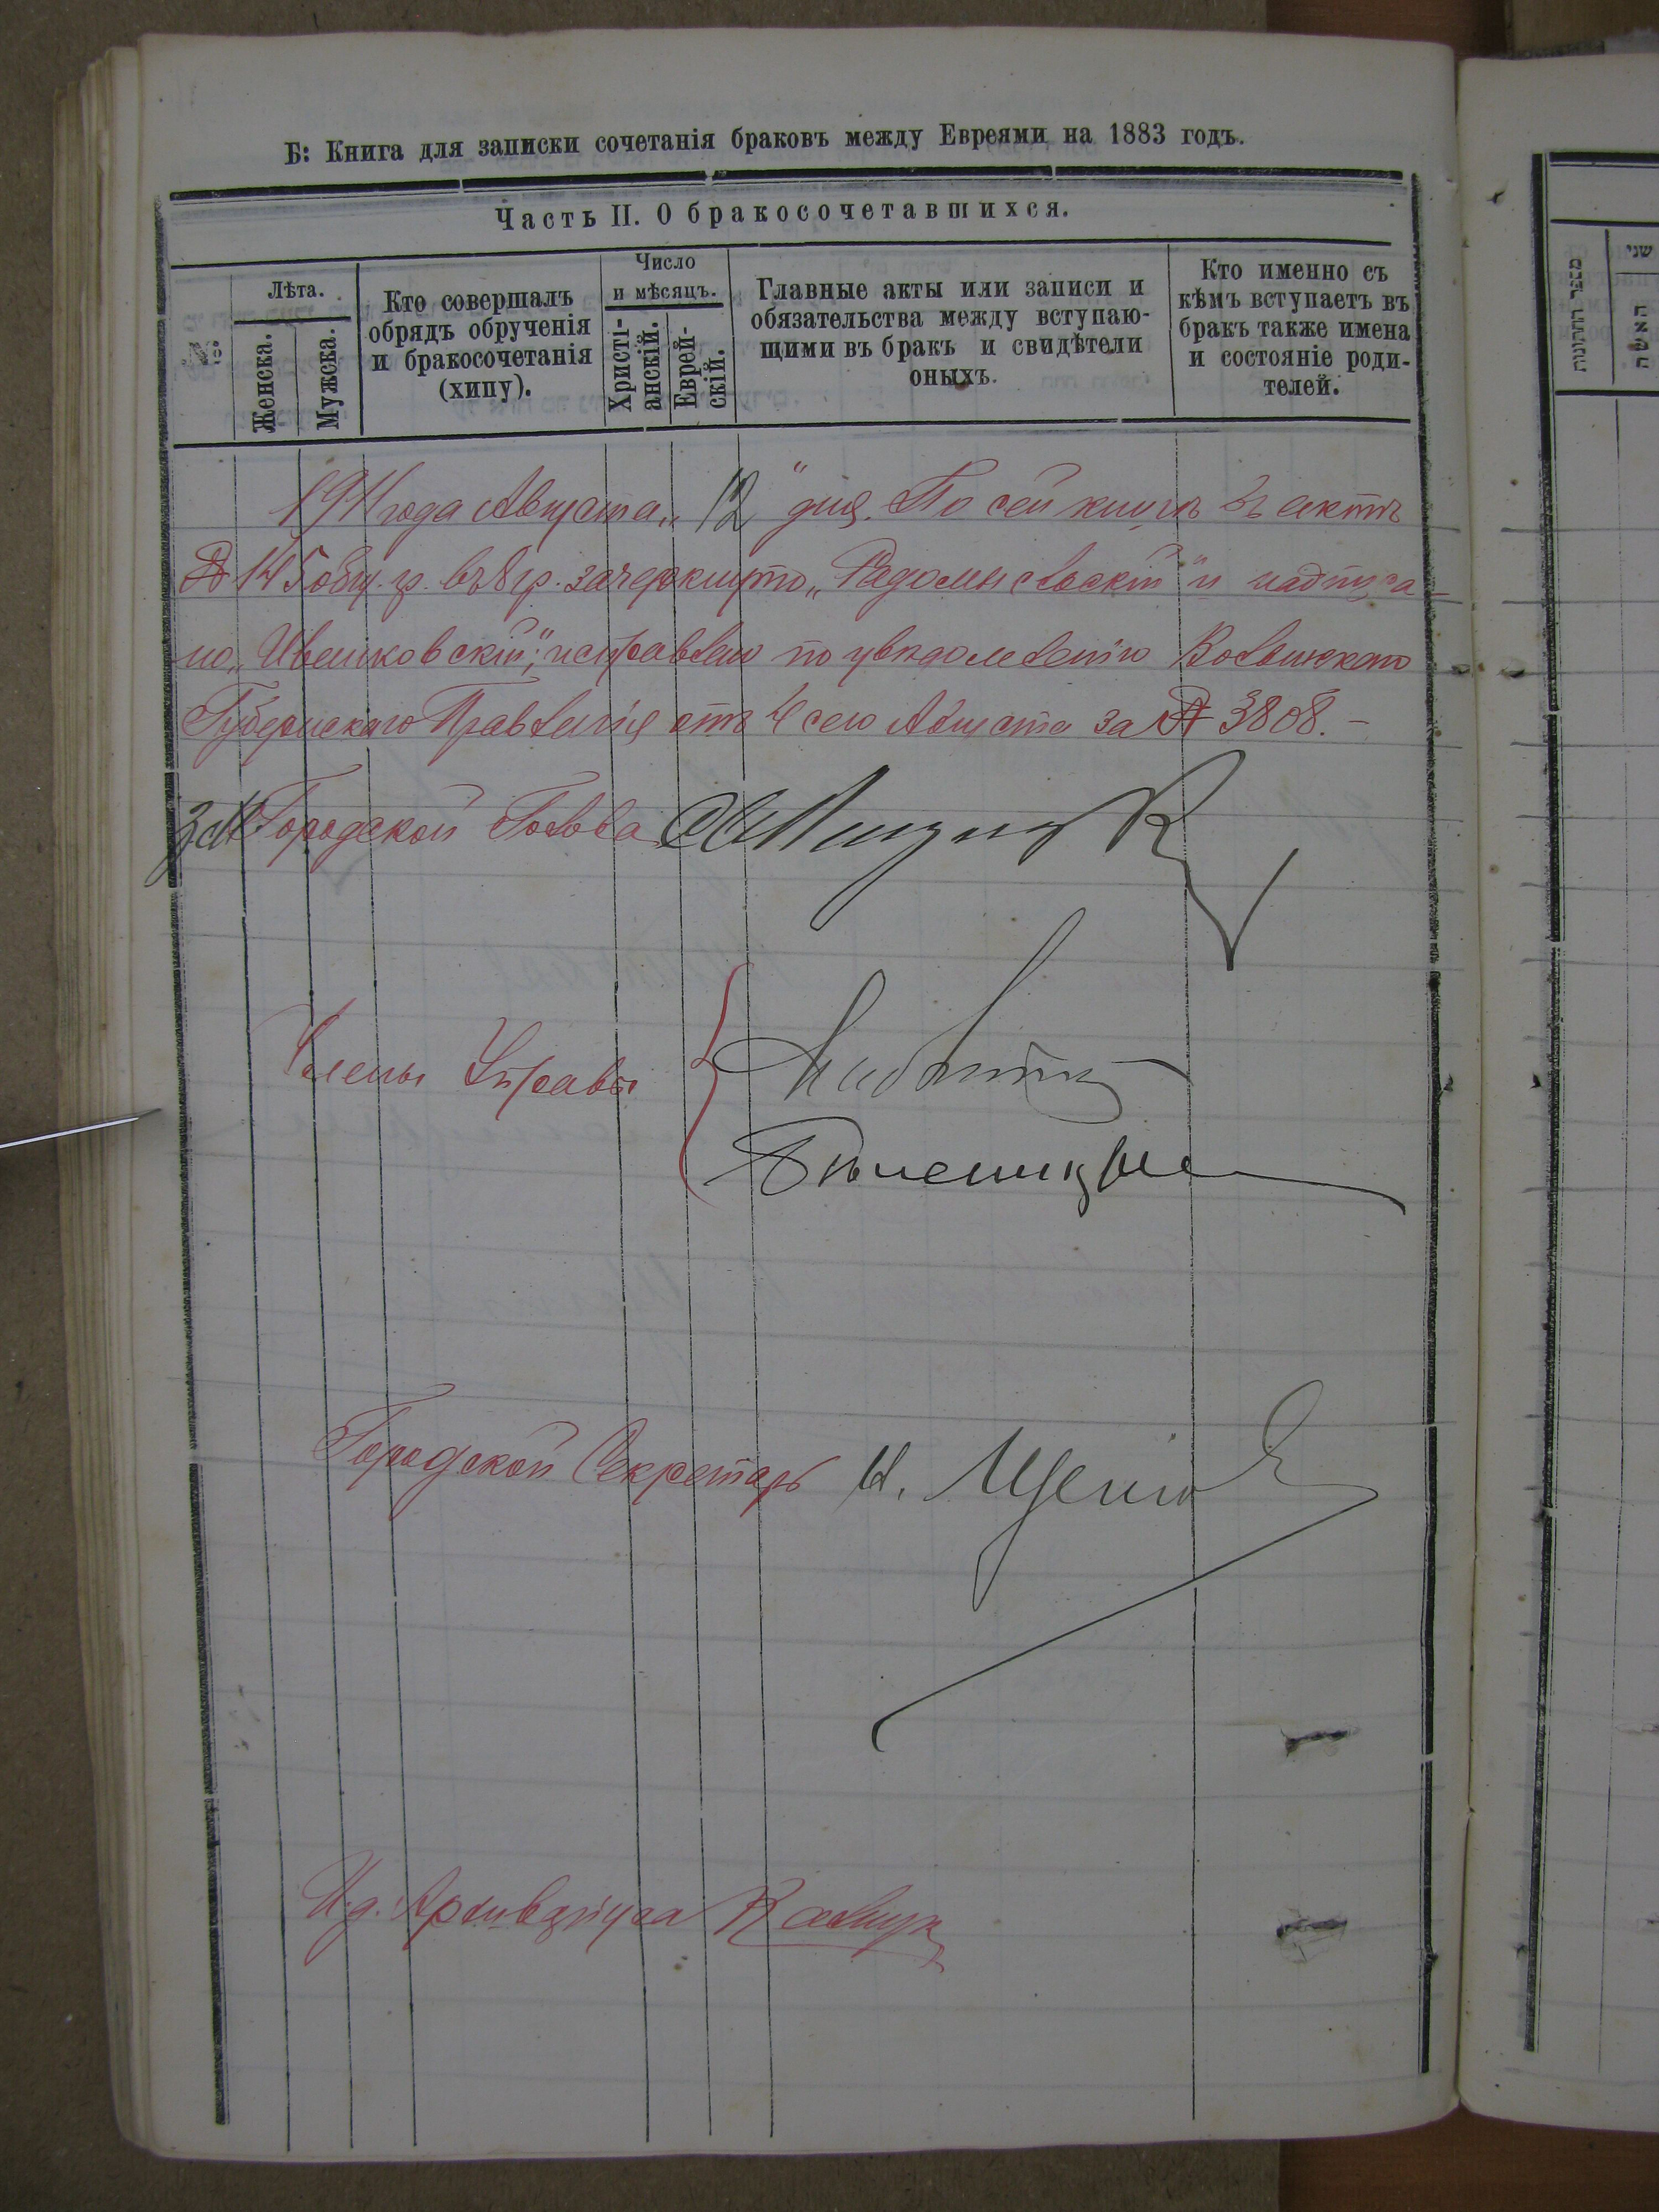 Б: Книга для записки сочетанія браковъ между Евреями на 1883 годъ.
Часть II. О бракосочетавшихся.
№
Лѣта.
Женска.
Мужска.
Кто совершалъ
обрядъ обрученія
и бракосочетанія
(хипу).
Число
и мѣсяцъ.
Христі-
анскій.
Еврей-
скій.
Главные акты или записи и
обязательства между вступаю-
щими въ бракъ и свидѣтели
оныхъ.
Кто именно съ
кѣмъ вступаетъ въ
бракъ также имена
и состояніе роди-
телей.
1911 года Августа „12" дня. По сей книгѣ въ актѣ
№ 145 общ. гр. въ 8 гр. зачеркнуто „Радомысльскій" и надписа-
но „Ивенковскій"; исправлено по увѣдомленію Волынскаго
Губернскаго Правленія отъ 4 сего Августа за № 3808.-
З.М. Городской Голова
Члены Управы
Городской Секретарь И.
И.д. Архиваріуса
מספר החתונות
שני
האישה